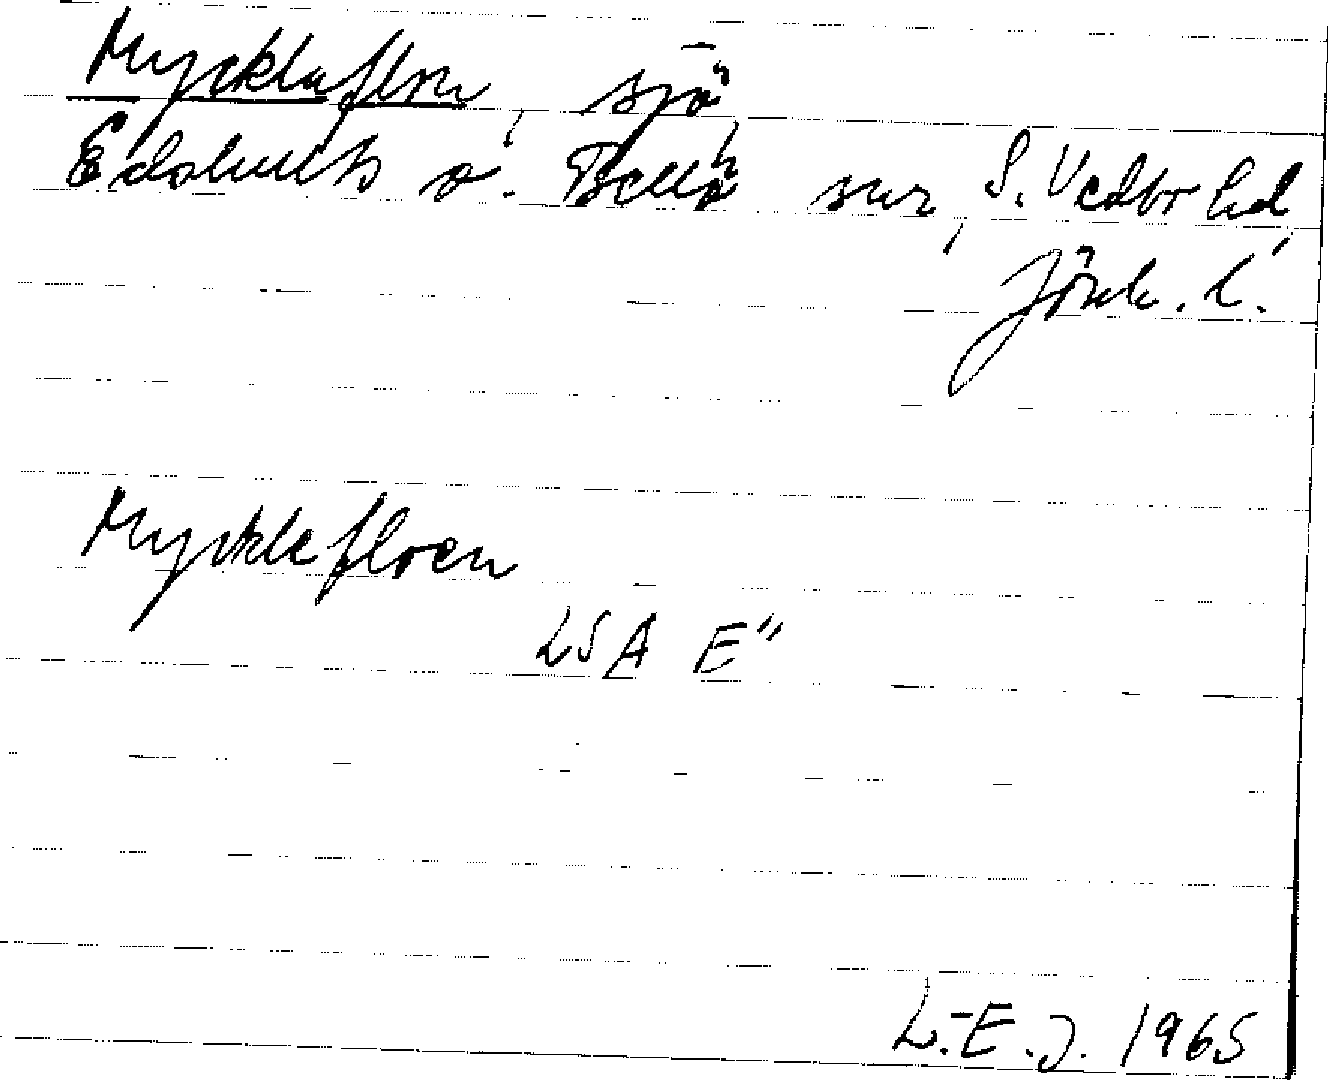 Mycklaflon, sjö,
Edshults o. Bellö snr, S. Vedbo hd,
Jönk. l.
Mycklefloen
LSA E"
L.-E.J. 1965